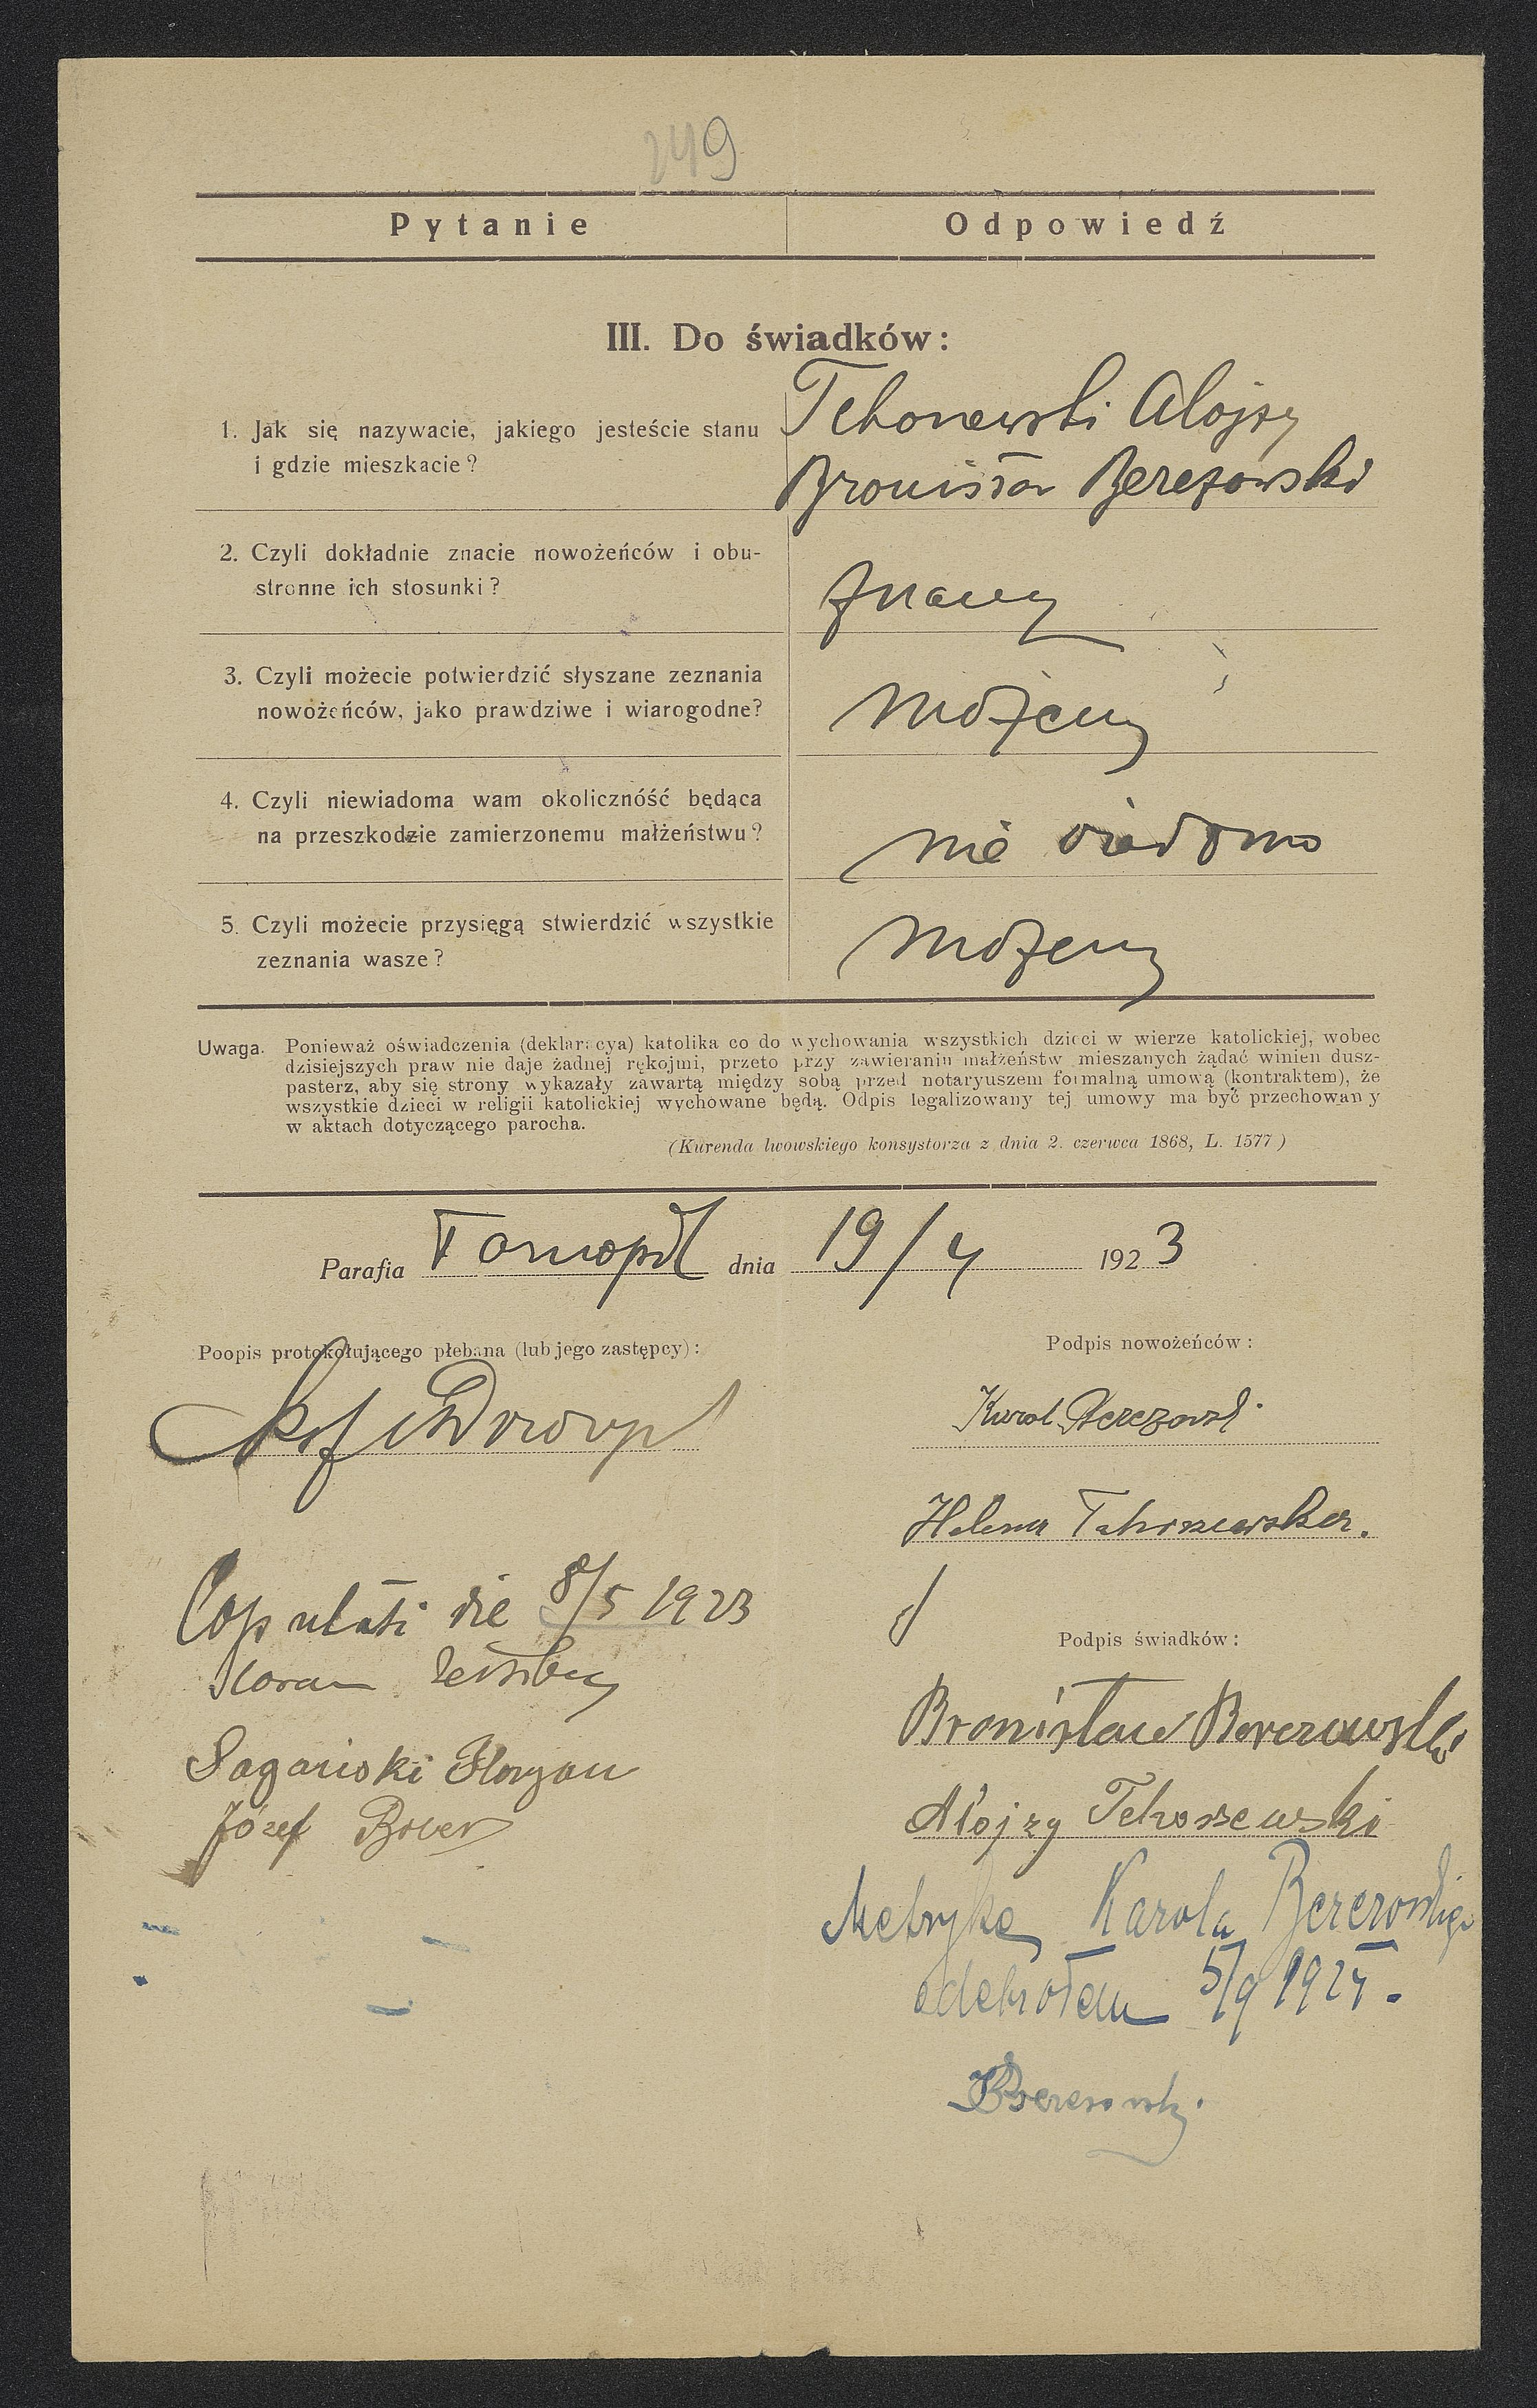 249
Pytanie Odpowiedź
III. Do świadków:
1. Jak się nazywacie, jakiego jesteście stanu
i gdzie mieszkacie?
Tchorzewski Alojzy
Bronisław Berezowski
2. Czyli dokładnie znacie nowożeńców i obu-
stronne ich stosunki?
znamy
3. Czyli możecie potwierdzić słyszane zeznania
nowożeńców, jako prawdziwe i wiarogodne?
możemy
4. Czyli niewiadoma wam okolicznóść będąca
na przeszkodzie zamierzonemu małżeństwu?
nie wiadomo
5. Czyli możecie przysięgą stwierdzić wszystkie
zeznania wasze?
możemy
Uwaga. Ponieważ oświadczenia (deklaracya) katolika co do wychowania wszystkich dzieci w wierze katolickiej, wobec
dzisiejszych praw nie daje żadnej rękojmi, przeto przy zawieraniu małżeństw mieszanych żądać winien dusz-
pasterz, aby się strony wykazały zawartą między sobą przed notaryuszem formalną umową (kontraktem), że
wszystkie dzieci w religii katolickiej wychowane będą. Odpis legalizowany tej umowy ma być przechowany
w aktach dotyczącego parocha.
(Kurenda lwowskiego konsystorza z dnia 2. czerwca 1868, L. 1577)
Parafia Tarnopol dnia 19/4 1923
Poopis protokołującego plebana (lub jego zastępcy):
Podpis nowożeńców:
Karol Berezowski
Helena Tchorzewska.
Copulati die 8/5 1923
Coram testibus
Podpis świadków:
Bronisław Berezowski
Józef
Alojzy Tchorzewski
Metrykę Karola Berezowskiego
odebrałem 5/9 1924.
KBerezowski